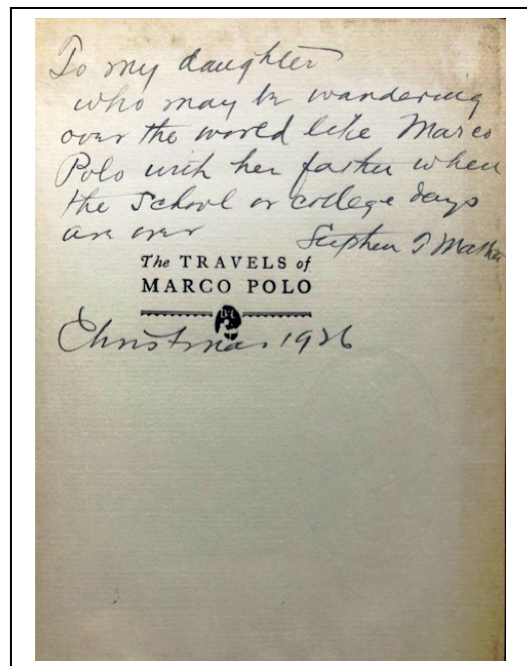 To my daughter
who may be wandering
over the world like Marco
Polo with her father when
the School or college days
are over
Stephen T Mather
The TRAVELS of
MARCO POLO
Christmas 1926